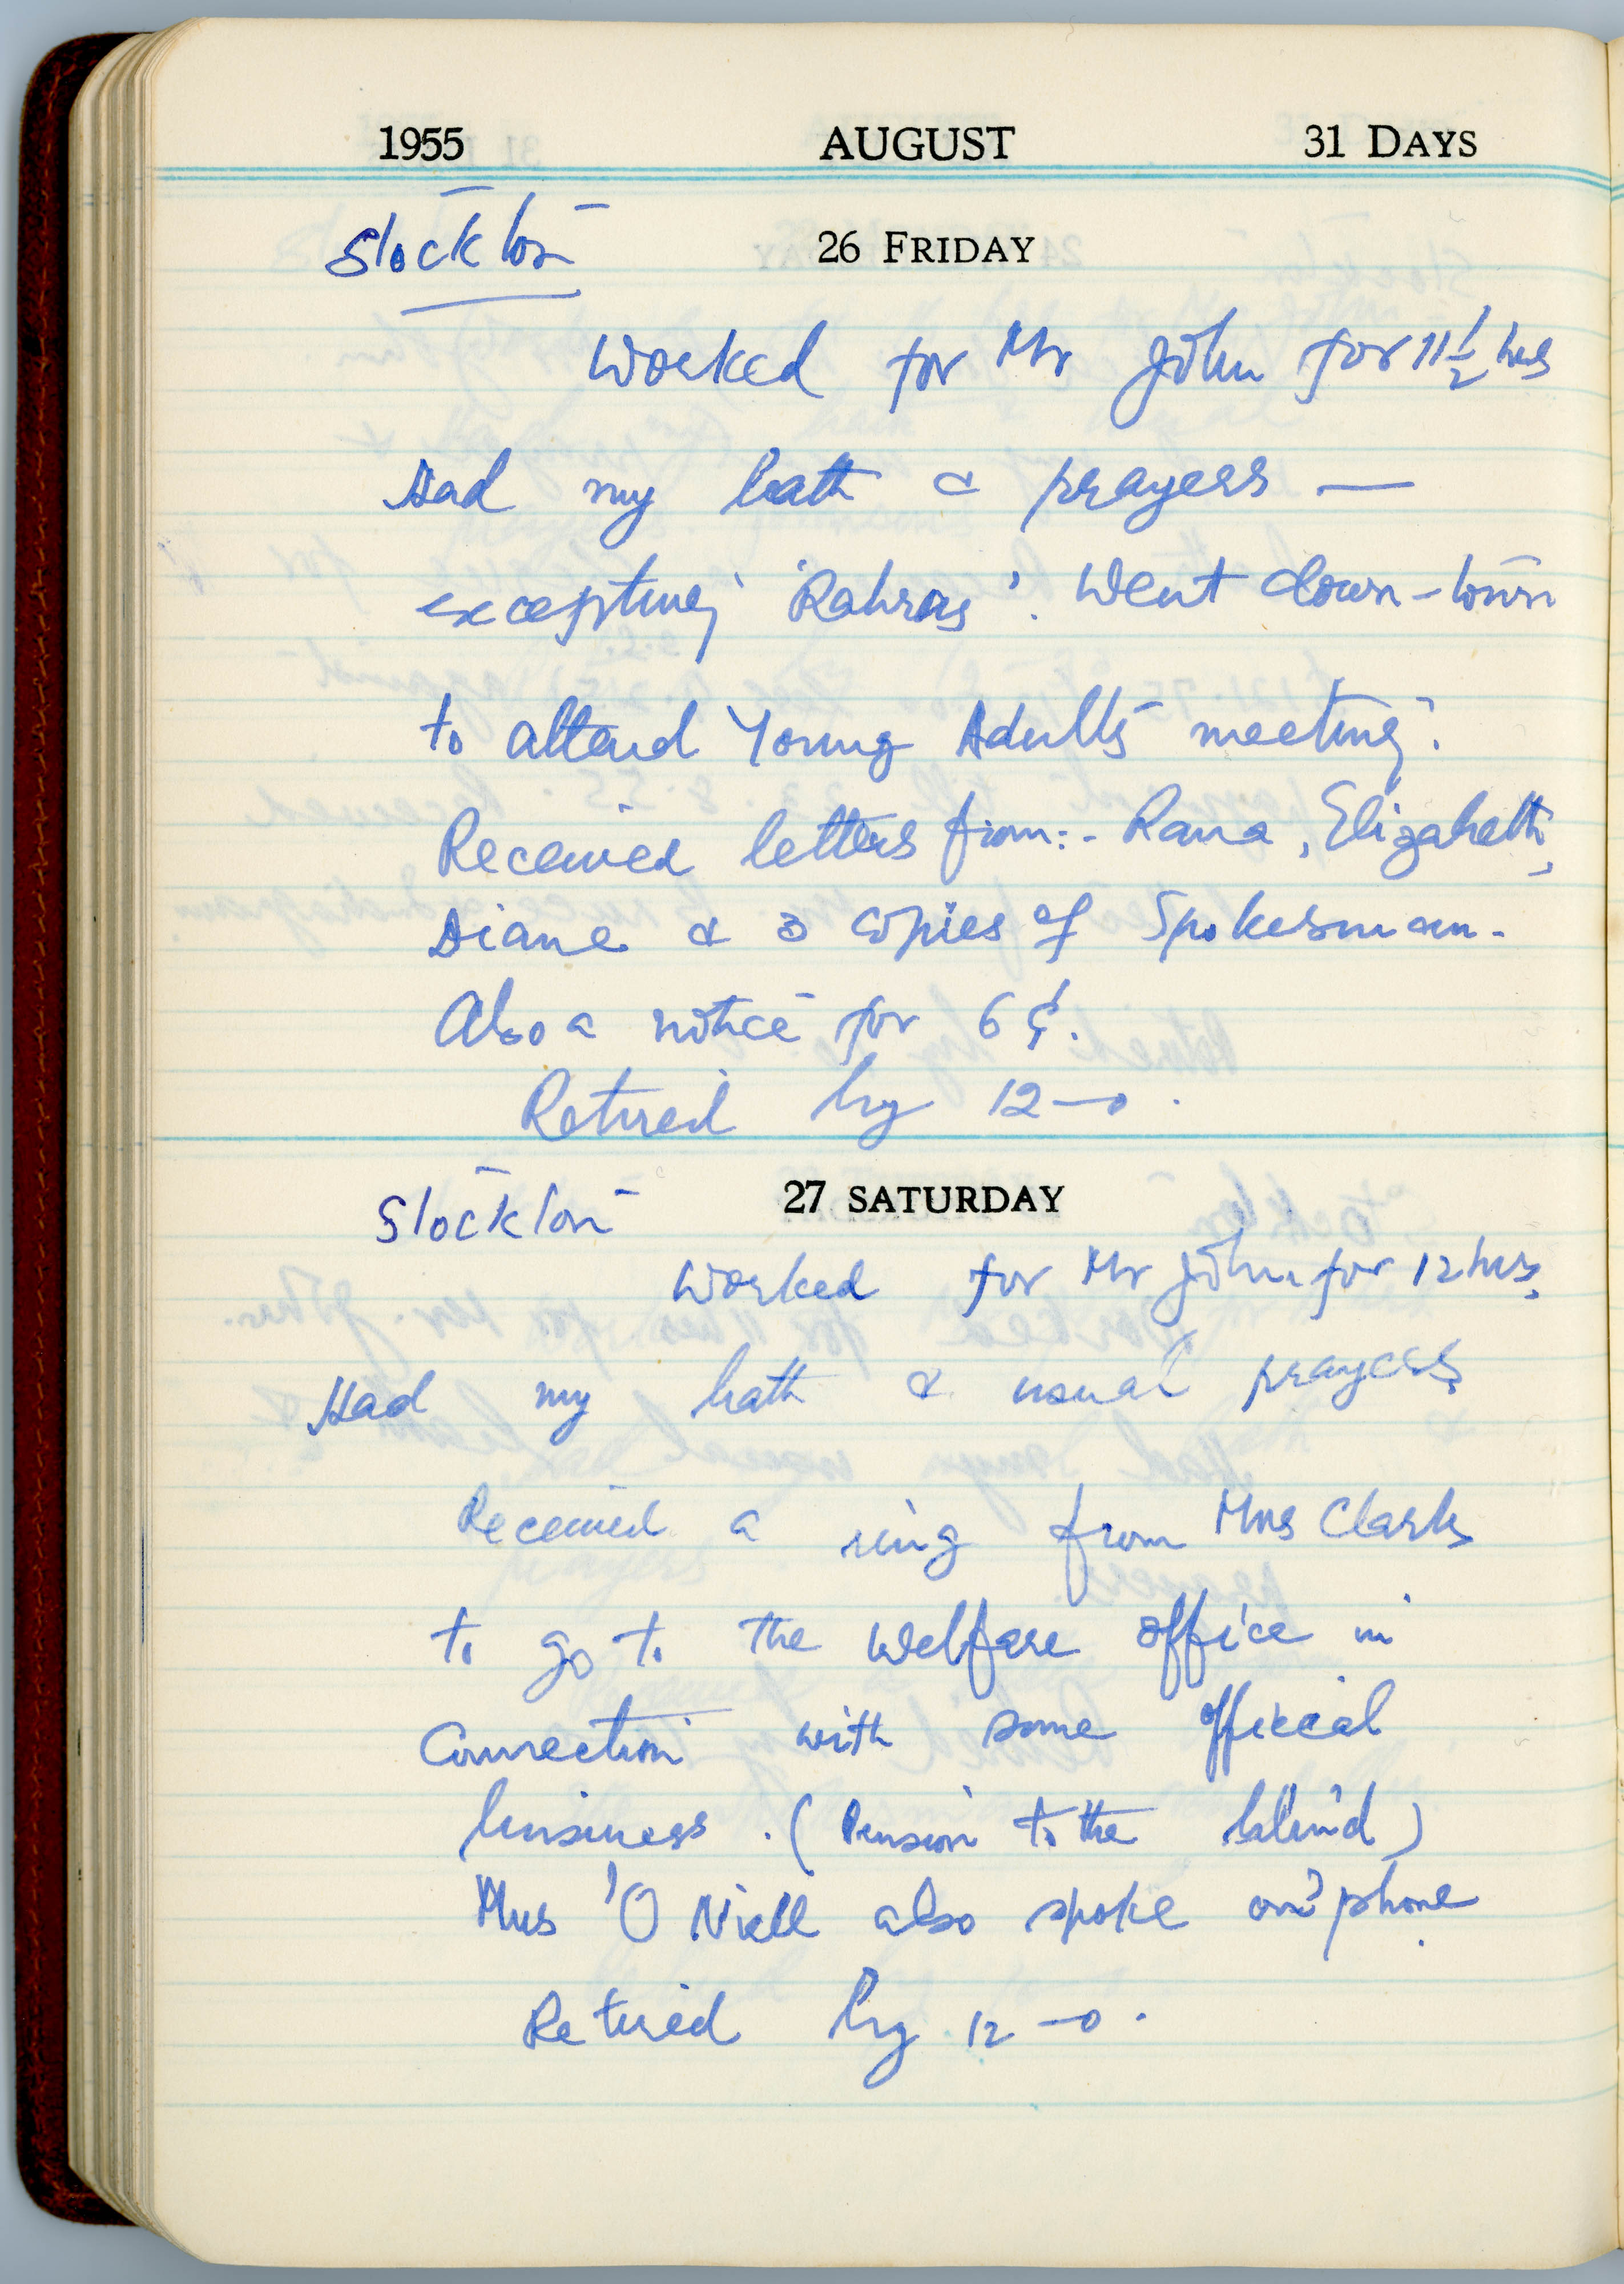 1955 AUGUST 31 DAYS
Stockton 26 FRIDAY
Worked for Mr John for 11½ hrs
Had my bath & prayers —
excepting 'Rahras'. Went down-town
to attend Young Adults meeting.
Received letters from:- Rana, Elizabeth,
Diane & 3 copies of Spokesman.
Also a notice for 6 ¢.
Retired by 12—0.
Stockton 27 SATURDAY
Worked for Mr John for 12 hrs.
Had my bath & usual prayers
Received a ring from Mrs Clark
to go to the welfare office in
Connection with some official
business. (Pension to the blind)
Mrs 'O Niell also spoke on 'phone.
Retired by 12—0.